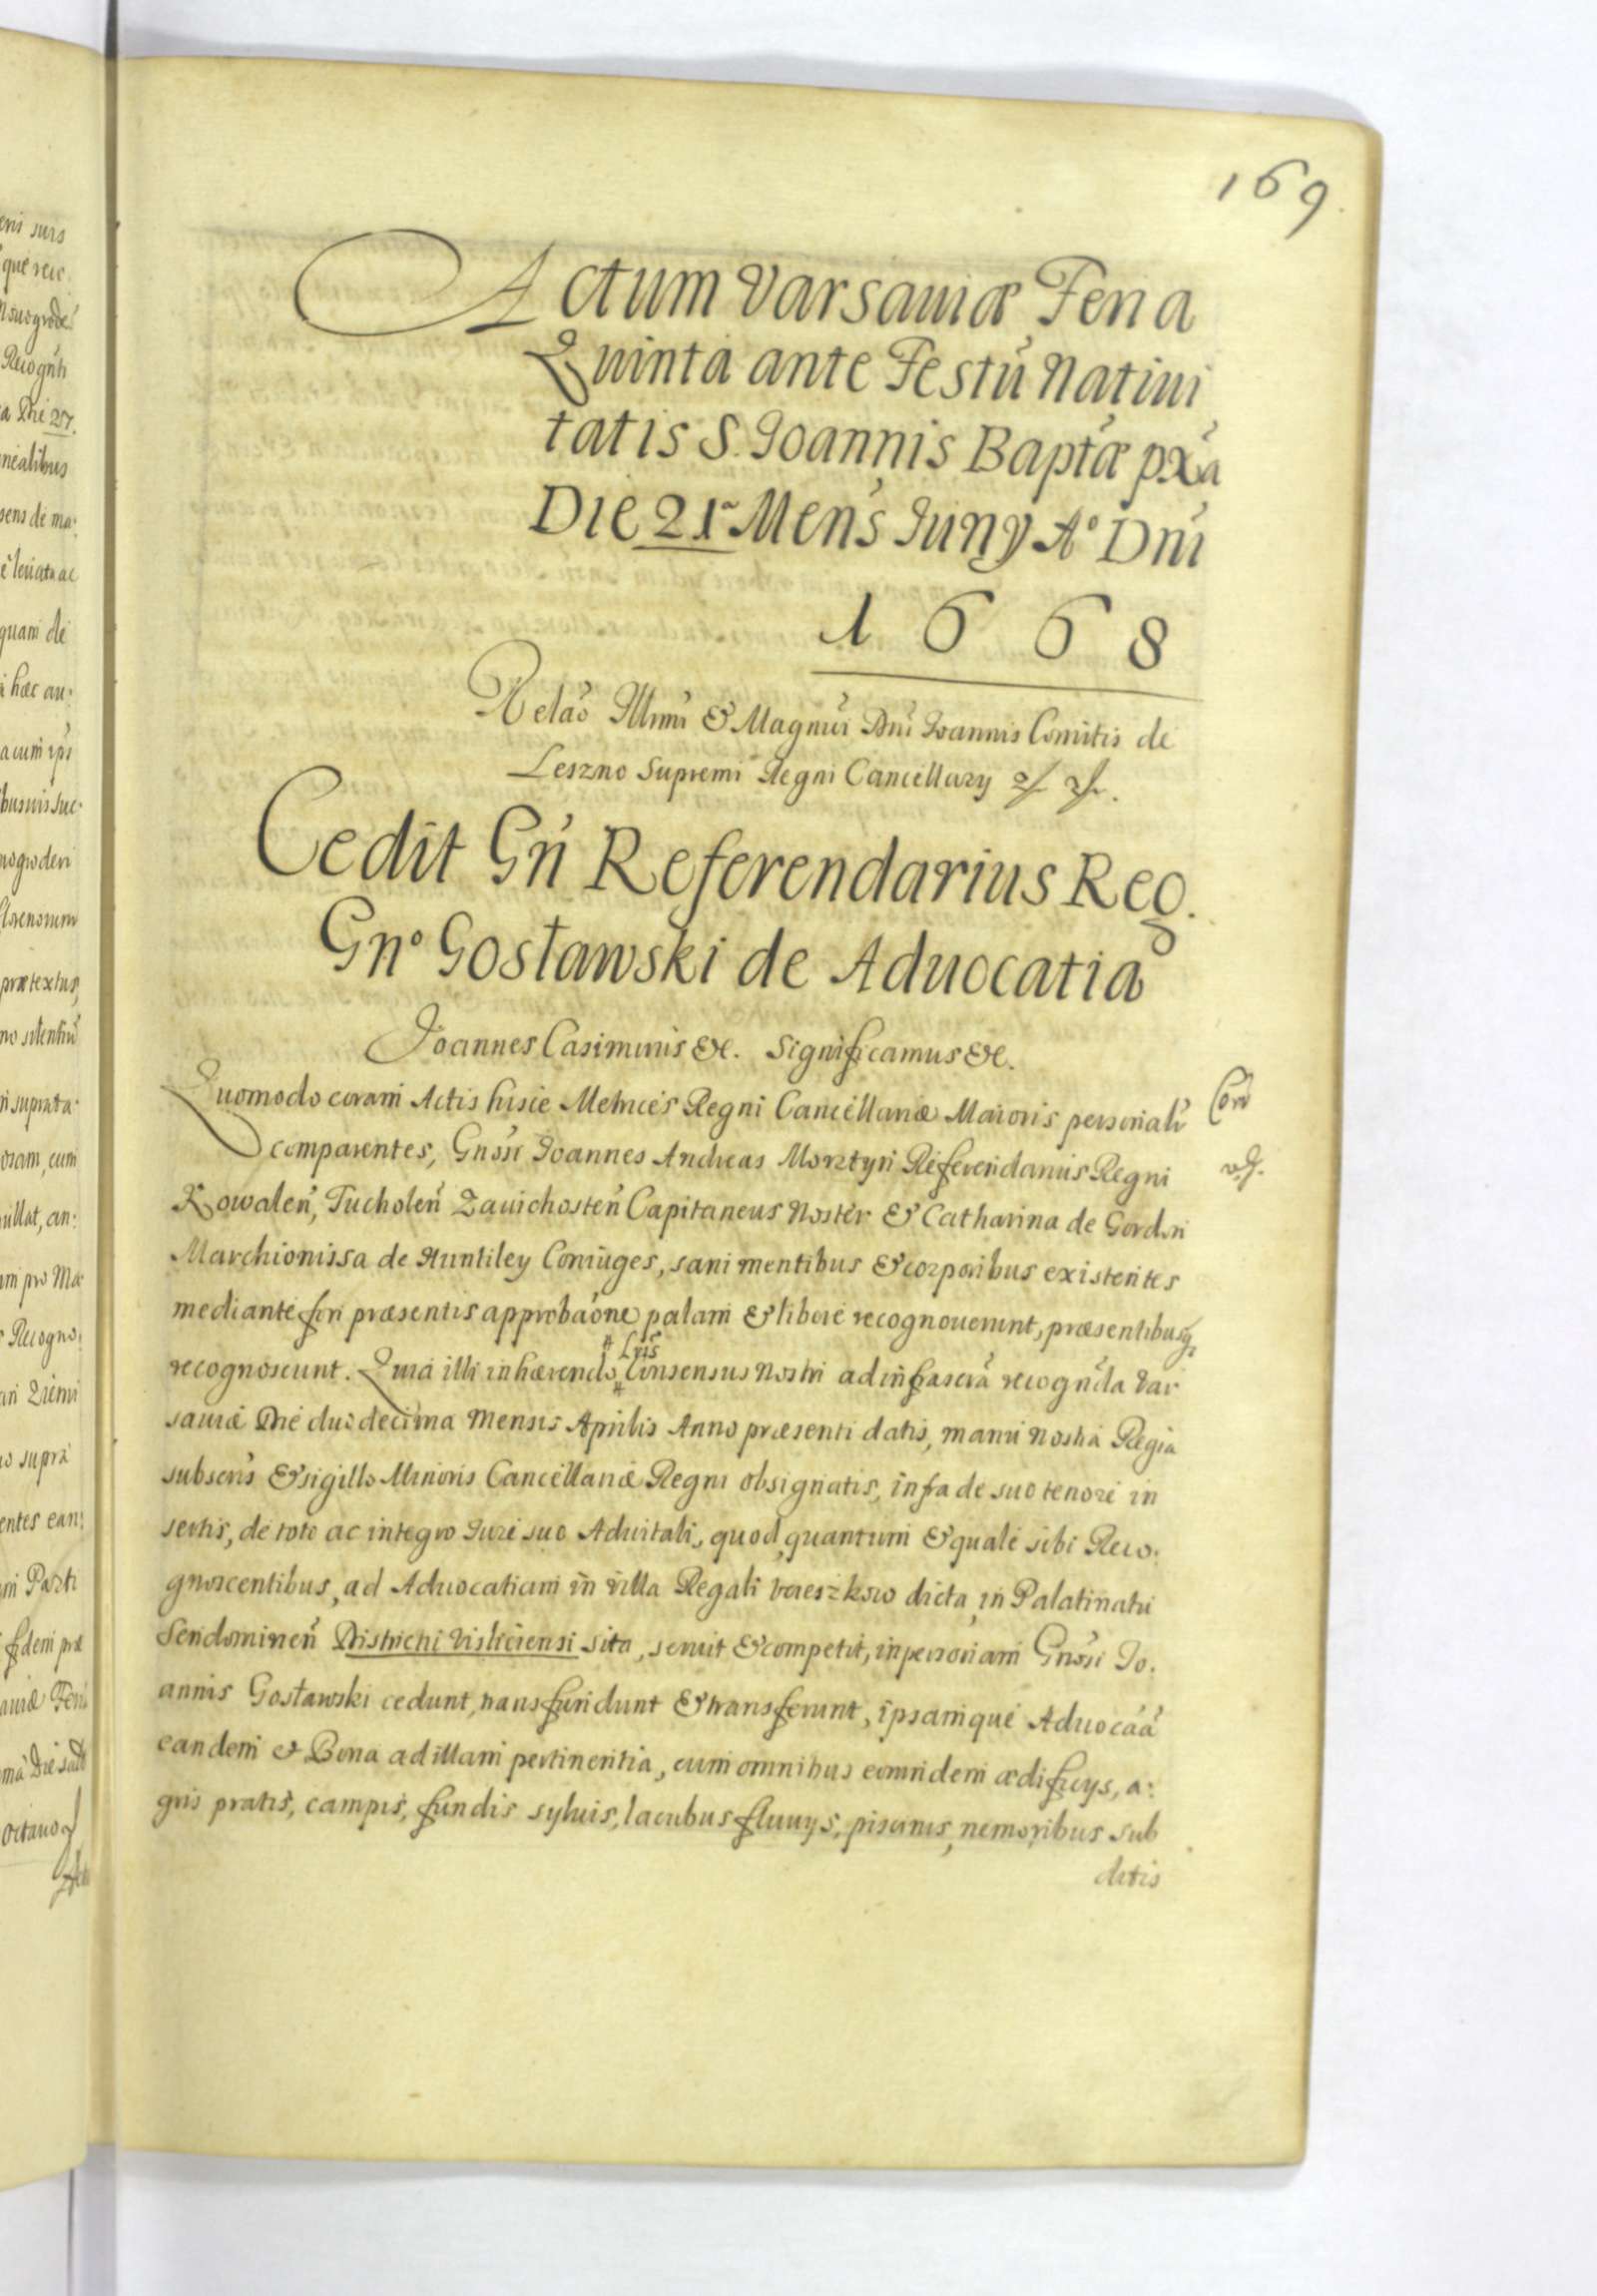 169
Actum Varsaviæ Feria
Quinta ante Festū Nativi
tatis S. Joannis Baptæ pxā
Die 21 Mens Juny Aº Dni
1668
Relaō Illmi & Magnci Dni Joannis Comitis de
Leszno Supremi Regni Cancellary
Cedit Gń Referendarius Reg.
Gnº Gosławski de Aduocatia
Joannes Casimirus &c. Significamus &c.
Quomodo coram Actis hisce Metrices Regni Cancellariæ Maioris personalr
comparentes, Gnosi Joannes Andreas Morztyn Referendarius Regni
Kowalen, Tucholen Zauichosten Capitaneus Noster & Catharina de Gordon
Marchionissa de Huntiley Coniuges, sani mentibus & corporibus existentes
mediante fori præsentis approbaōne palam & libere recognouerunt, præsentibusq
recognoscunt. Quia illi inhærendo # Lris # Consensus Nostri ad infrascrā recognda Var
sauiæ Die duodecima Mensis Aprilis Anno præsenti datis, manu Nostra Regia
subscris & sigillo Minoris Cancellariæ Regni obsignatis, infra de suo tenore in
sertis, de toto ac integro Jure suo Aduitali, quod quantum & quale sibi Reco:
gnoscentibus, ad Aduocatiam in villa Regali dicta, in Palatinatu
Sendomirien Districtu Visliciensi sita, seruit & competit, in personam Gnosi Jo:
annis Gosławski cedunt, transfundunt & transferunt, ipsamque Aduocaā
eandem & Bona ad illam pertinentia, cum omnibus eorundem ædificys, a:
gris pratis, campis, fundis syluis, lacubus fluuys, piscinis, nemoribus sub
ditis